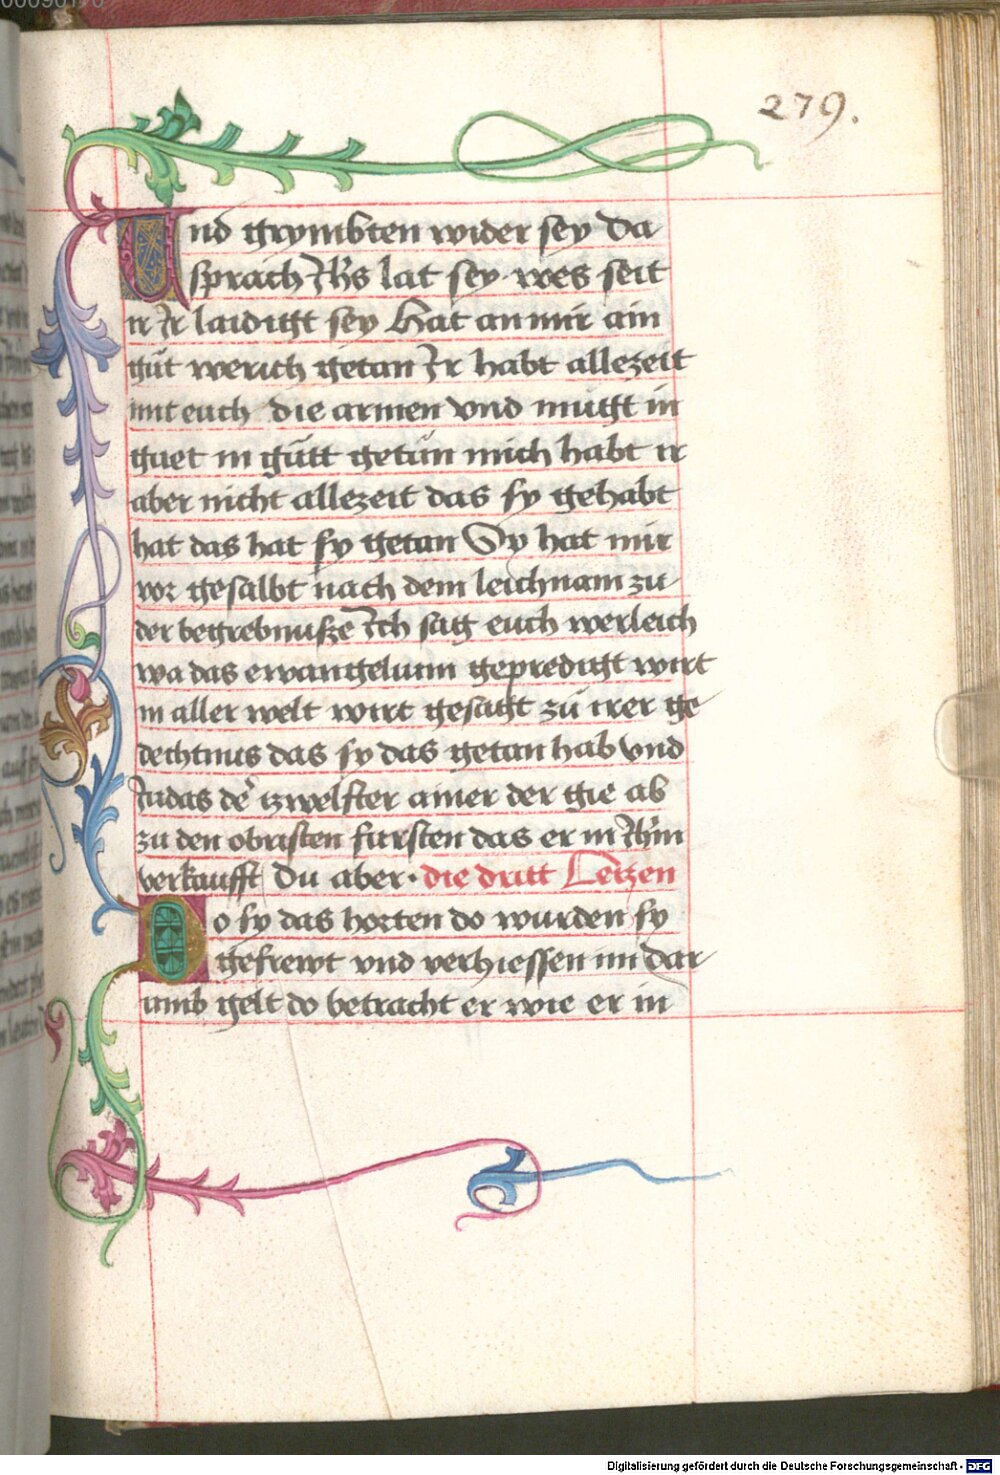 279.
Und grymbten wider sey Da
sprach Jhs lat sey wes seit
ir Ir laidigt sey Hat an mir ain
gůt werich getan Ir habt allezeit
mit euch die armen vnd mugt in
guet in gůtt getůn mich habt ir
aber nicht allezeit das sy gehabt
hat das hat sy getan Sy hat mir
vor gesalbt nach dem leichnam zu
der begrebnusze Ich sag euch werleich
wa das ewangelium gepredigt wirt
in aller welt wirt gesagt zů irer ge
dechtnus das sy das getan hab vnd
Judas de' tzwelfter ainer der gie ab
zu den obristen fursten das er in Jh'm
verkaufft Du aber · die dritt Letzen
Do sy das horten do wurden sy
gefrewt vnd verhiessen im dar
umb gelt do betracht er wie er in
Digitalisierung gefördert durch die Deutsche Forschungsgemeinschaft - DFG